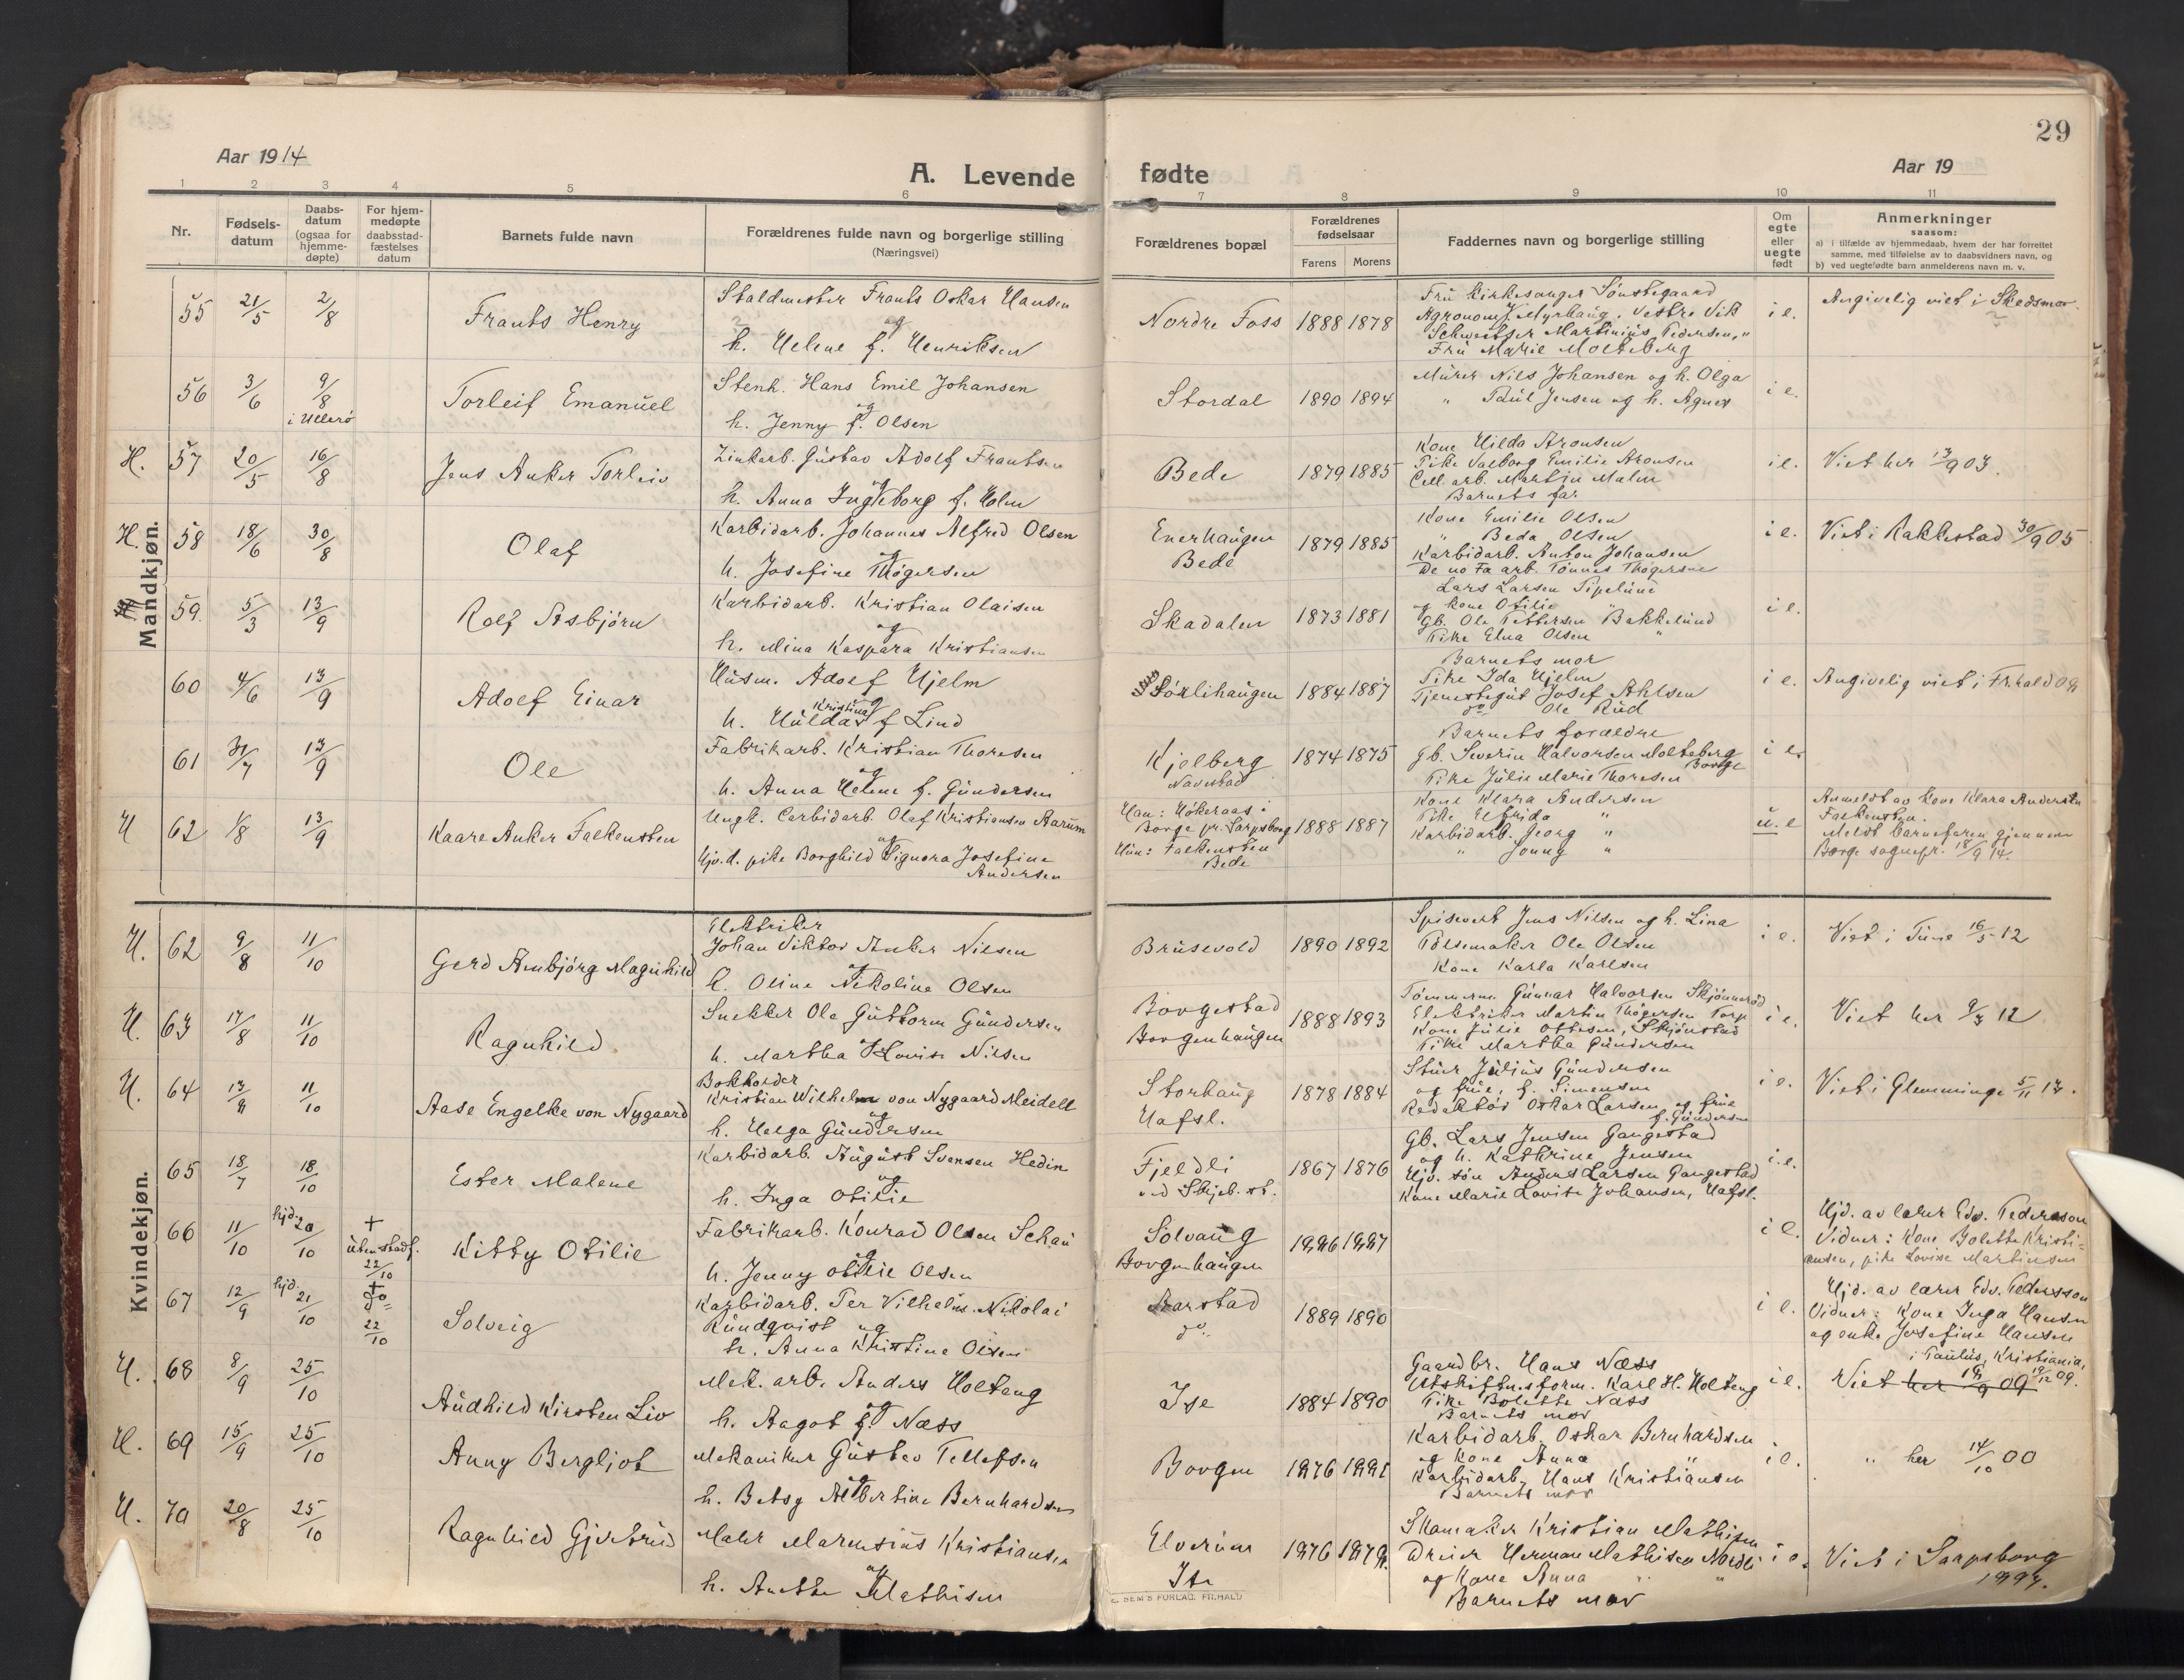 29
Aar 1914
A. Levende fødte
Aar 19
1 2 3 4 5 6 7 8 9 10 11
Nr.
Fødsels-
datum
Daabs-
datum
(ogsaa for
hjemme-
døpte)
For hjem-
medøpte
daabsstad-
fæstelses
datum
Barnets fulde navn
Forældrenes fulde navn og borgerlige stilling
(Næringsvei)
Forældrenes bopæl
Forældrenes
fødselsaar
Farens Morens
Faddernes navn og borgerlige stilling
Om
egte
eller
uegte
født
Anmerkninger
saasom:
a) i tilfælde av hjemmedaab, hvem der har forrettet
samme, med tilføielse av to daabsvidners navn, og
b) ved uegtefødte barn anmelderens navn m. v.
Mandkjøn.
55 21/5 2/8
Frants Henry
Staldmester Frants Oskar Hansen
og
h. Helene f. Henriksen
Nordre Foss 1888 1878
Fru Kirkesanger Sønstegaard
Agronom J. Myrhaug, Vestre Vik
Schweitser Martinius Pedersen, "
Fru Marie Molteberg
i e.
Angivelig viet i Skedsmo.
56 3/6 9/8
i Ullerø
Torleif Emanuel
Stenh. Hans Emil Johansen
og
h. Jenny f. Olsen
Stordal 1890 1894
Murer Nils Johansen og h. Olga
" Paul Jensen og h. Agnes
i e.
H. 57 20/5 16/8
Jens Anker Torleiv
Zinkarb. Gustav Adolf Frantsen
og
h. Anna Ingeborg f. Holm
Bede 1879 1885
Kone Hilda Aronsen
Pike Valborg Emilie Aronsen
Cell. arb. Martin Malm
Barnets far
i e.
Viet her 13/9 03.
H. 58 18/6 30/8
Olaf
Karbidarb. Johannes Alfred Olsen
og
h. Josefine Thøgersen
Enerhaugen
Bede
1879 1885
Kone Emilie Olsen
" Beda Olsen
Karbidarb. Anton Johansen
De no Fa arb. Tønnes Thøgersen
i e.
Viet i Rakkestad 30/9 05
59. 5/3 13/9
Rolf Asbjørn
Karbidarb. Kristian Olaisen
og
h. Mina Kaspara Kristiansen
Skadalen 1873 1881
Lars Larsen Pipelune
og kone Otilie "
Gb. Ole Pettersen Bakkelund
Pike Elna Olsen "
i e.
60 4/6 13/9
Adolf Einar
Husm. Adolf Hjelm
og
Kristina
h. Hulda f Lind
Sørlihaugen 1884 1887
Barnets mor
Pike Ida Hjelm
Tjenestegut Josef Ahlsen
do Ole Rud
i e.
Angivelig viet i Fr.hald 09
61 31/7 13/9
Ole
Fabrikarb. Kristian Thoresen
og
h. Anna Helene f. Gundersen
Kjelberg
Navestad
1874 1875
Barnets forældre
Gb. Severin Halvorsen Molteberg
Borge
Pike Julie Marie Thoresen
i e.
H 62 1/8 13/9
Kaare Anker Falkensten
Ungk. Carbidarb. Olaf Kristiansen Aarum
og
Hjv.d. pike Borghild Signora Josefine
Andersen
Han: Høkeraas i
Borge pr. Sarpsborg
Hun: Falkensten
Bede
1888 1887
Kone Klara Andersen
Pike Elfrida "
Karbidarb. Georg "
" Jonny "
u. e
Anmeldt av kone Klara Andersen
Falkensten.
Meldt barnefaren gjennem
Borge sognepr. 18/9 14.
Kvindekjøn.
H. 62 9/8 11/10
Gerd Annbjørg Magnhild
Elektriker
Johan Viktor Anker Nilsen
og
h. Oline Nikoline Olsen
Brusevold 1890 1892
Spisevert Jens Nilsen og h. Lina
Pølsemaker Ole Olsen
Kone Karla Karlsen
i e.
Viet i Tune 16/5 12
H. 63 17/8 11/10
Ragnhild
Snekker Ole Guttorm Gundersen
og
h. Martha Lovise Nilsen
Borgestad
Borgenhaugen
1888 1893
Tømmerm. Gunnar Halvorsen Skjønnerød
Elektriker Martin Thøgersen Torp
Kone Julie Ottesen, Skjønstad
Pike Martha Gundersen
i e.
Viet her 9/3 12
H. 64 13/8 11/10
Aase Engelke von Nygaard
Bokholder
Kristian Wilhelm von Nygaard Meidell
og
h. Helga Gundersen
Storhaug
Hafsl.
1878 1884
Stuer Julius Gundersen
og frue, f. Simensen
Redaktør Oskar Larsen og frue
f. Gundersen
i e.
Viet i Glemminge 5/11 13.
65 18/7 18/10
Ester Malene
Karbidarb. August Svensen Hedin
og
h. Inga Otilie
Fjeldli
ved Skjeb. st.
1867 1876
Gb. Lars Jensen Gangestad
og h. Kathrine Jensen
Hjv. søn Anders Larsen Gangestad
Kone Marie Lovise Johansen, Hafsl.
i.e.
66 11/10 hjd. 20/10 + uten stadf. 22/10
Kitty Otilie
Fabrikarb. Konrad Olsen Schau
og
h. Jenny Otilie Olsen
Solvaug
Borgenhaugen
1886 1887
i e.
Hjd. av lærer Edv. Pedersson
Vidner: Kone Bolette Kristi-
ansen, pike Lovise Martinsen
67 12/9 hjd. 21/10 + do 22/10
Solveig
Karbidarb. Per Vilhelm Nikolai
Rundqvist og
h. Anna Kristine Olsen
Aarstad
do
1889 1890
i e.
Hjd. av lærer Edv. Pedersson
Vidner: Kone Inga Hansen
og enke Josefine Hansen
H. 68 8/9 25/10
Audhild Kirsten Liv
Mek. arb. Anders Holteng
og
h. Aagot f. Næss
Ise 1884 1890
Gaardbr. Hans Næss
Utskiftn.sform. Karl H. Holteng
Pike Bolette Næss
Barnets mor
i e.
i Paulus, Kristiania,
Viet her 09 19/12 09.
H. 69 15/9 25/10
Anny Bergljot
Mekaniker Gustav Tellefsen
og
h. Betsy Albertine Bernhardsen
Borgen 1876 1881
Karbidarb. Oskar Bernhardsen
og kone Anna "
Karbidarb. Hans Kristiansen
Barnets mor
i e.
" her 14/10 00
H. 70 20/8 25/10
Ragnhild Gjertrud
Maler Marensius Kristiansen
og
h. Anette Mathisen
Elverum
Ise
1876 1879.
Skomaker Kristian Mathisen
Dreier Herman Mathisen Nordli
og kone Anna " "
Barnets mor
i e.
Viet i Sarpsborg
1897.
SEM'S FORLAG. FR.HALD